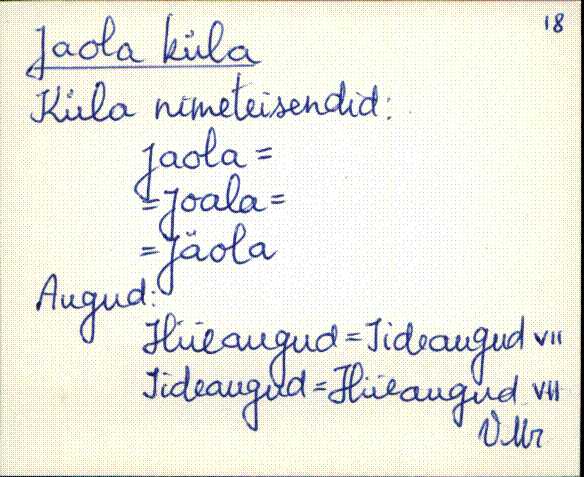 18
Jaola küla
Küla nimeteisendid:
Jaola =
= Joala =
= Jäola
Augud:
Hiieaugud = Iideaugud VII
Iideaugud = Hiieaugud VII
VMr